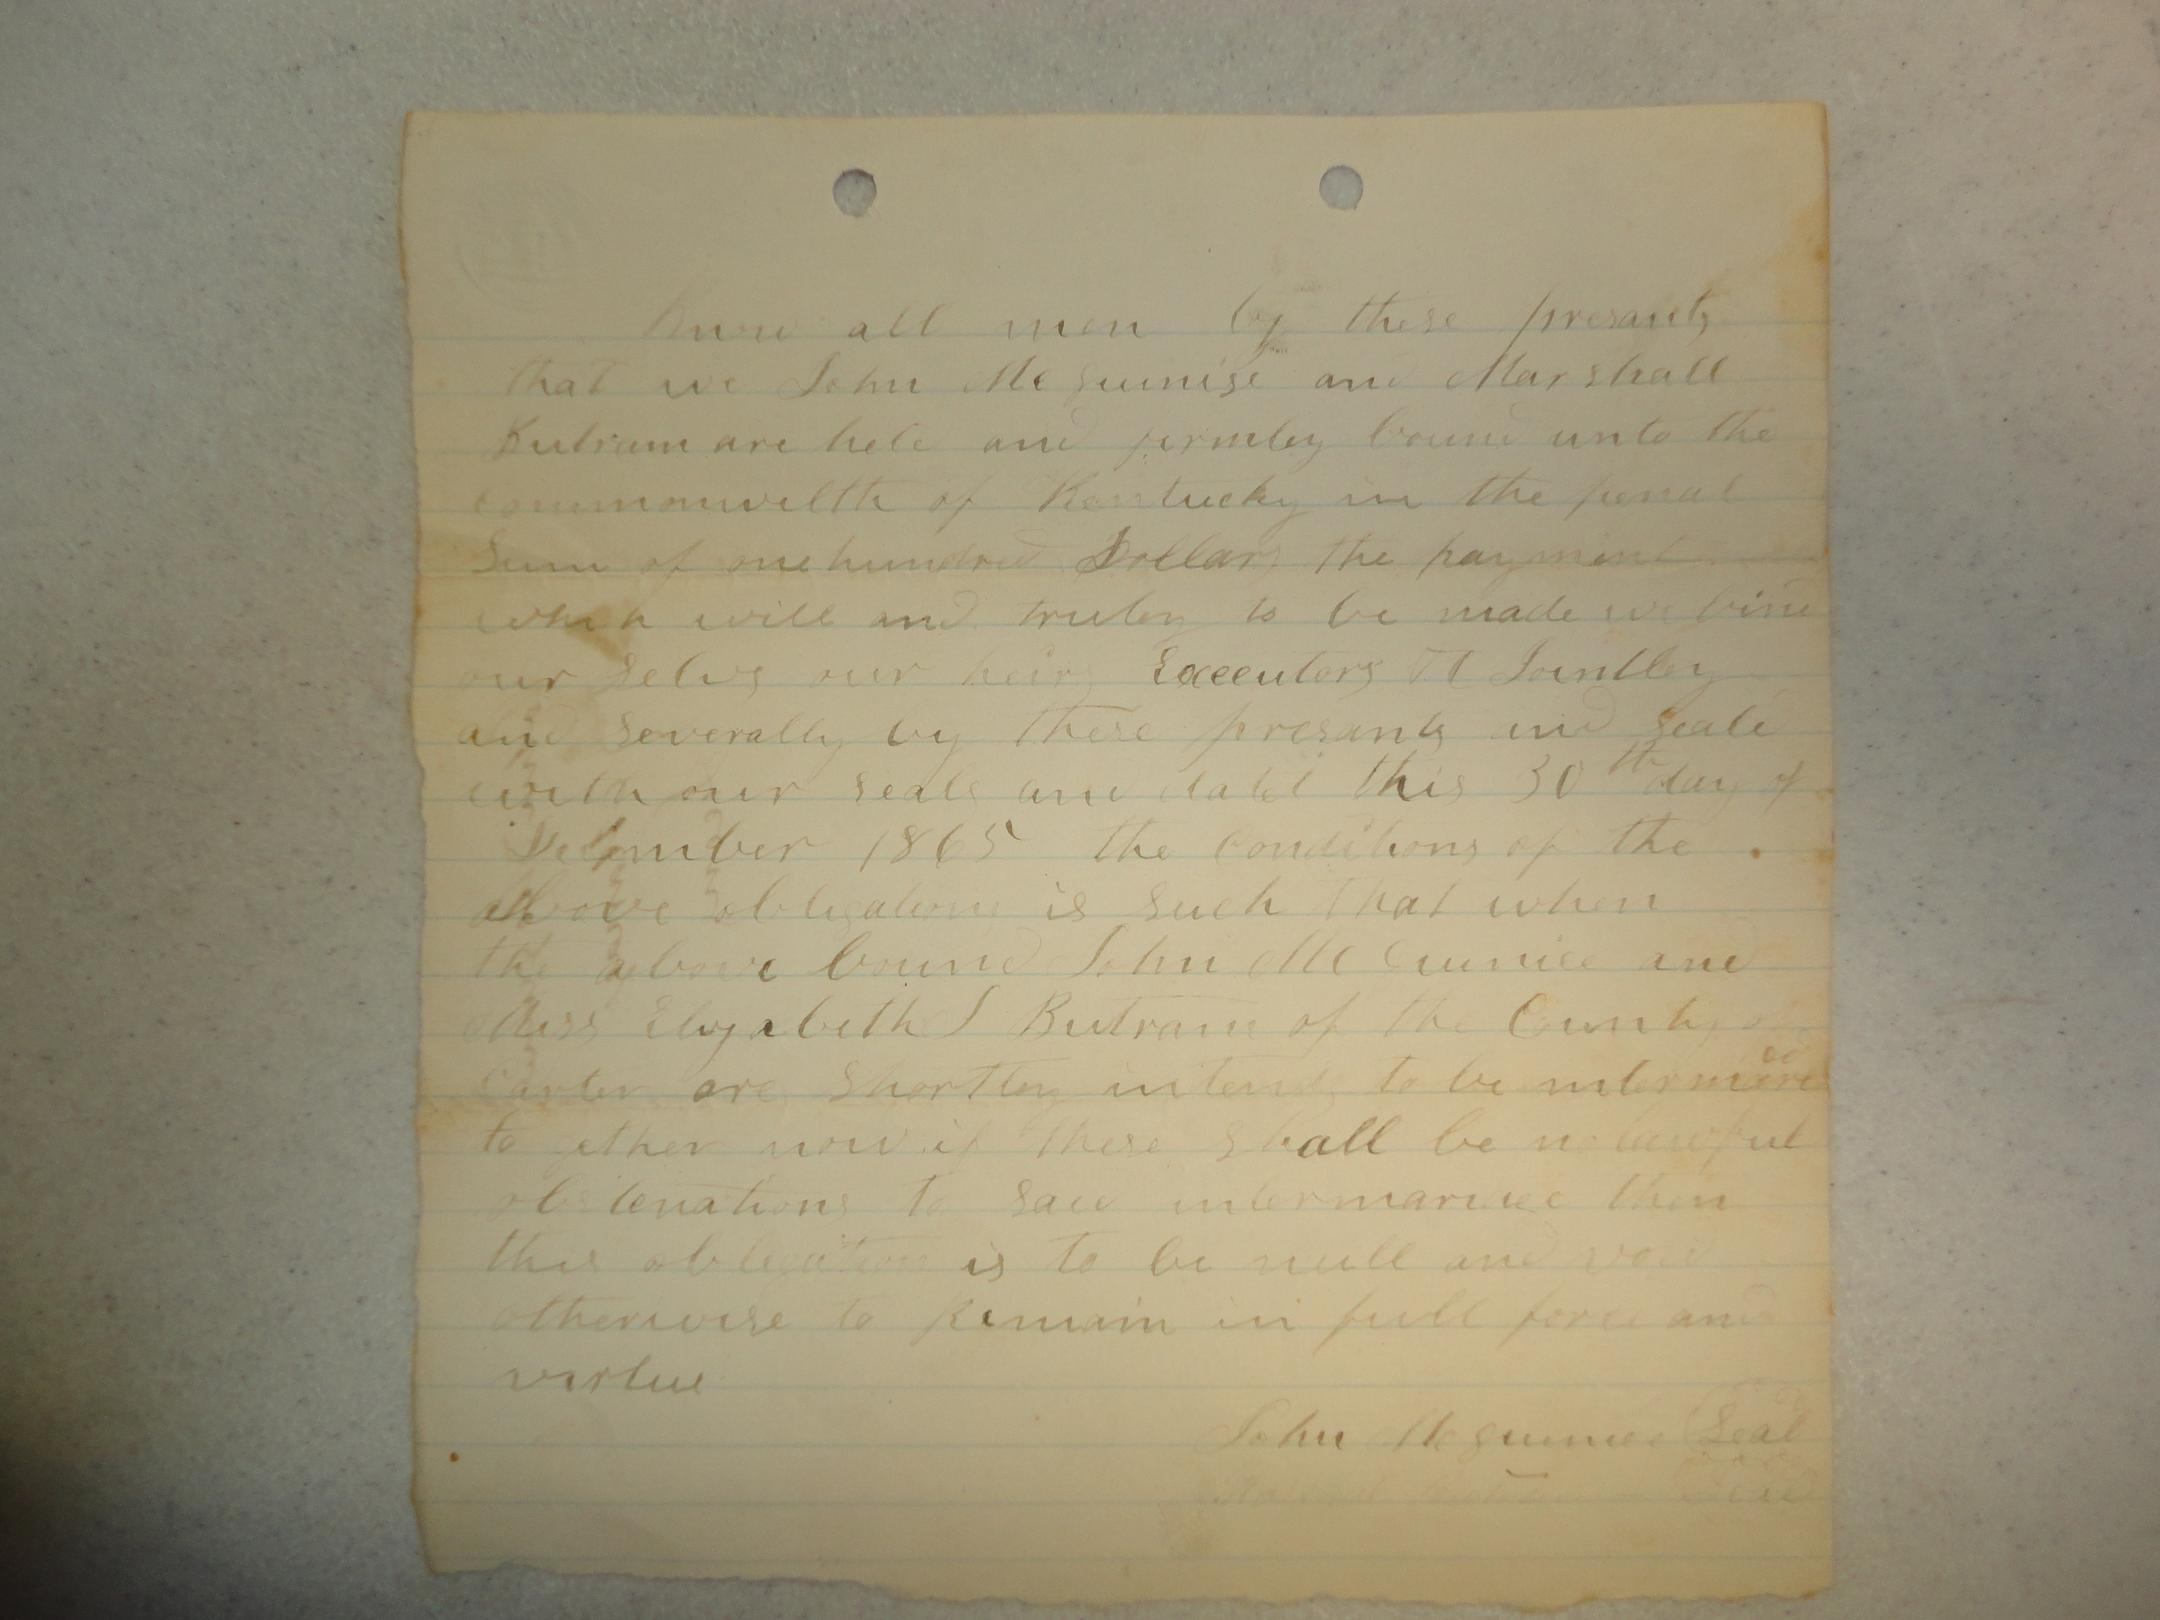 Know all men by these presants
that we John McGuinise and Marshall
Butram are held and firmley bound unto the
commonwelth of Kentucky in the penal
Sum of one hundred Dollars the payment
which will and truley to be made we bind
our Selvs our heirs Executors Jointley
and severally by these presants and seald
with our seals and dated this 30th day of
December 1865 the conditions of the
above obligations is such that when
the above bound John McGuinice and
Miss Elizabeth J Butram of the County of
Carter are shortley intends to be intermared
to gether now if these shall be no lawful
to said then
this obligation is to be null and void
otherwise to Remain in full force and
virtue
John McGuinice Seal
Seal